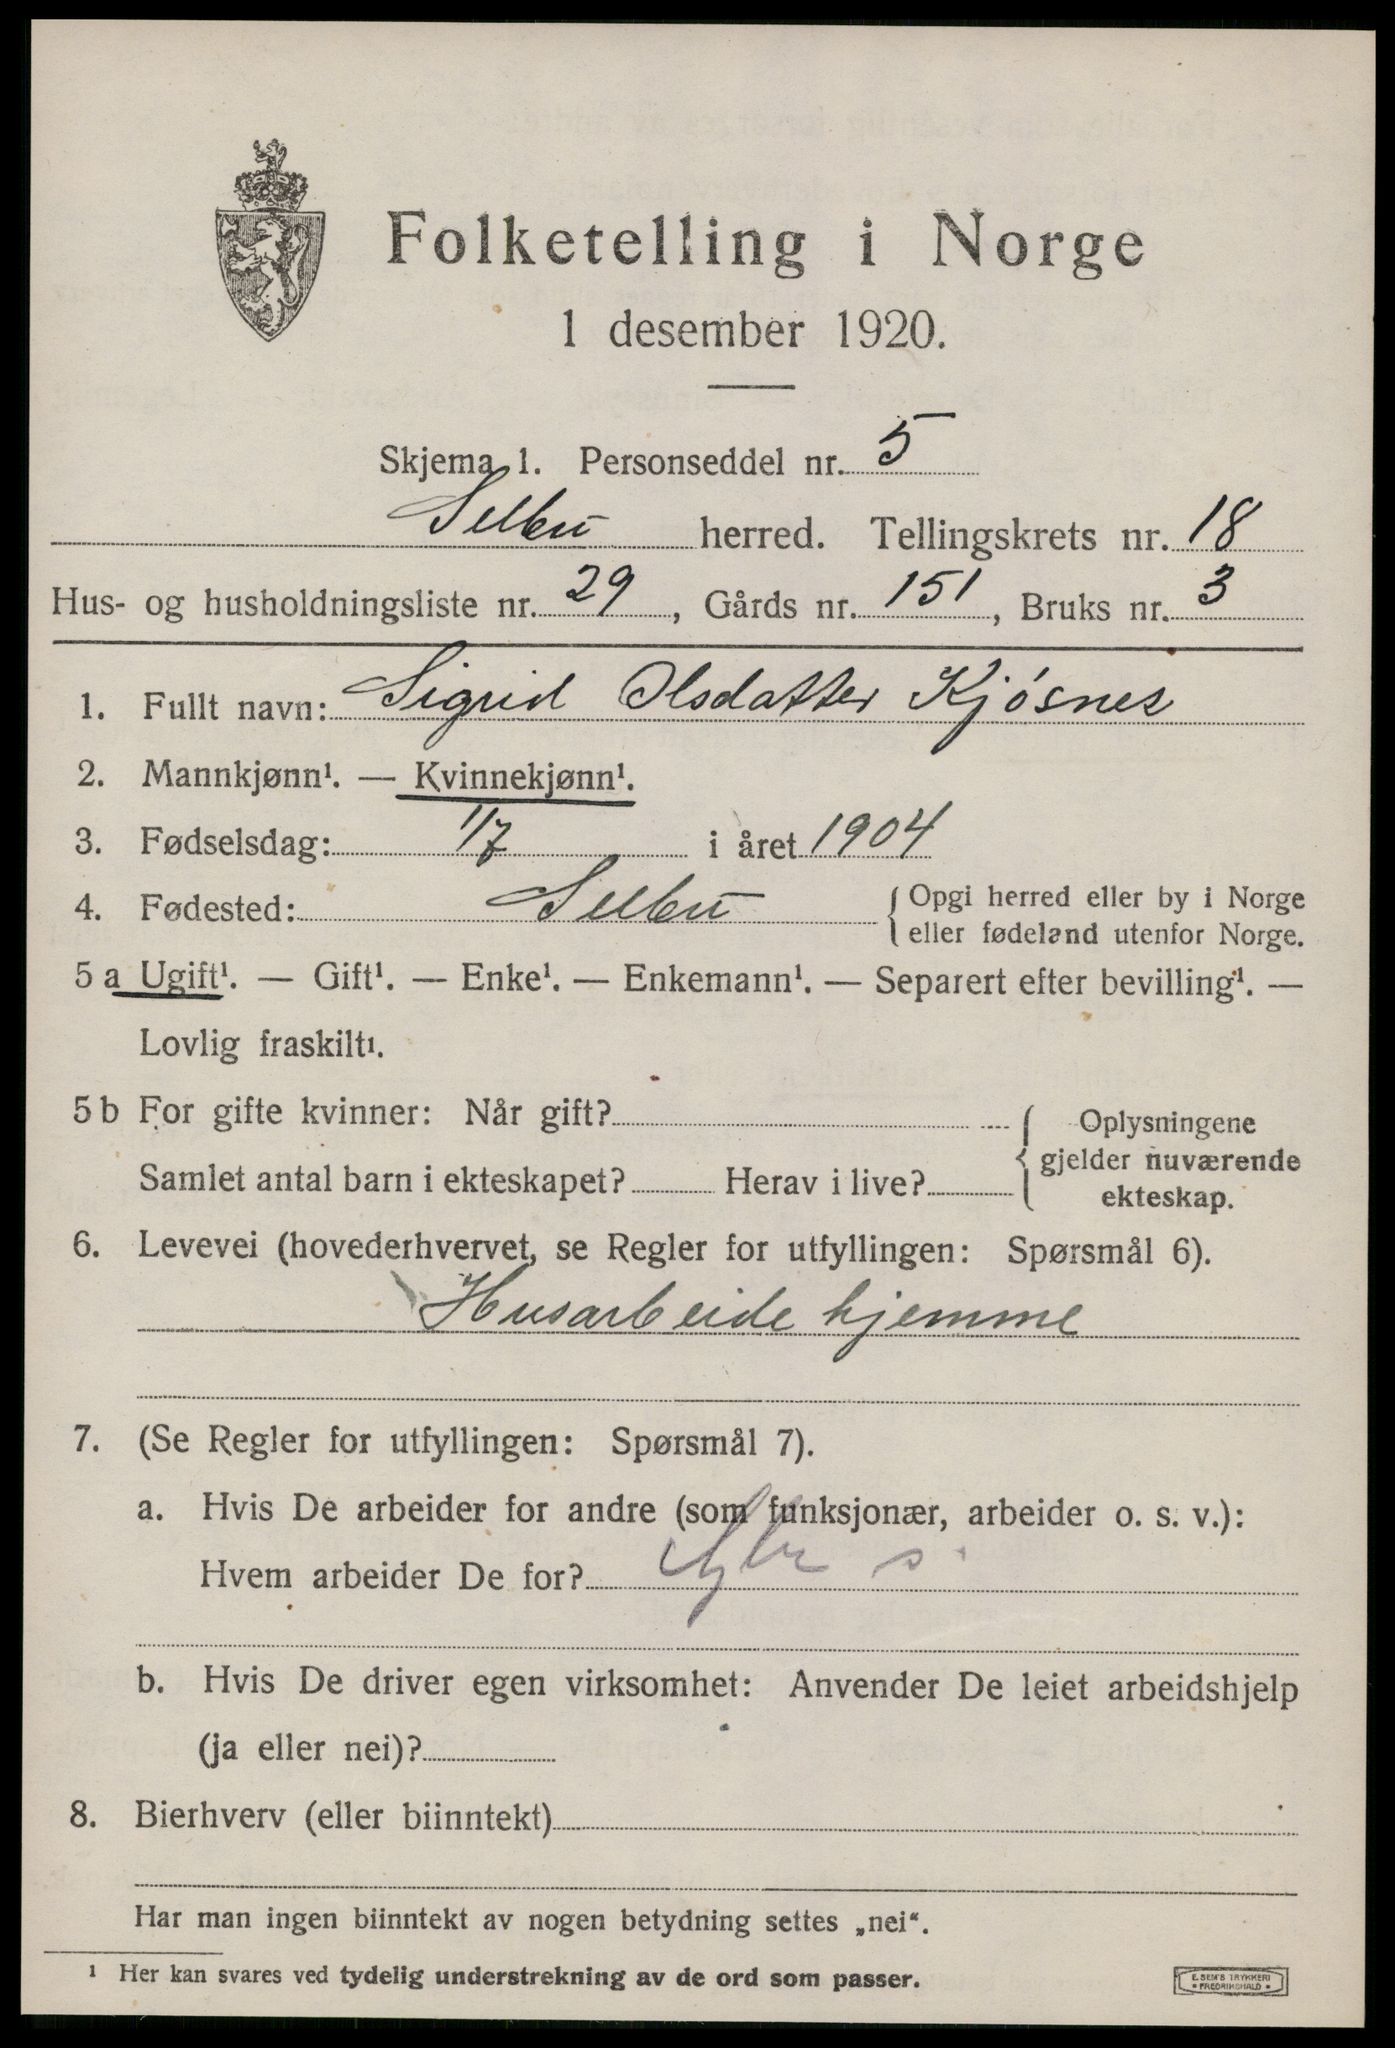 Folketelling i Norge
1 desember 1920.
Skjema 1. Personseddel nr. 5
Selbu herred. Tellingskrets nr. 18
Hus- og husholdningsliste nr. 29, Gårds nr. 151, Bruks nr. 3
1. Fullt navn: Sigrid Olsdatter Kjósnes
2. Mannkjønn¹. — Kvinnekjønn¹.
3. Fødselsdag: 1/7 i året 1904
4. Fødested: Selbu { Opgi herred eller by i Norge
eller fødeland utenfor Norge.
5 a Ugift¹. — Gift¹. — Enke¹. — Enkemann¹. — Separert efter bevilling¹. —
Lovlig fraskilt¹.
5 b For gifte kvinner: Når gift? { Oplysningene
gjelder nuværende
Samlet antal barn i ekteskapet? Herav i live?
ekteskap.
6. Levevei (hovederhvervet, se Regler for utfyllingen: Spørsmål 6).
Husarbeide hjemme
7. (Se Regler for utfyllingen: Spørsmål 7).
a. Hvis De arbeider for andre (som funksjonær, arbeider o. s. v.):
Hvem arbeider De for?
b. Hvis De driver egen virksomhet: Anvender De leiet arbeidshjelp
(ja eller nei)?
8. Bierhverv (eller biinntekt)
Har man ingen biinntekt av nogen betydning settes „nei“.
¹ Her kan svares ved tydelig understrekning av de ord som passer.
E. SEM'S TRYKKERI
• FREDRIKSHALD •